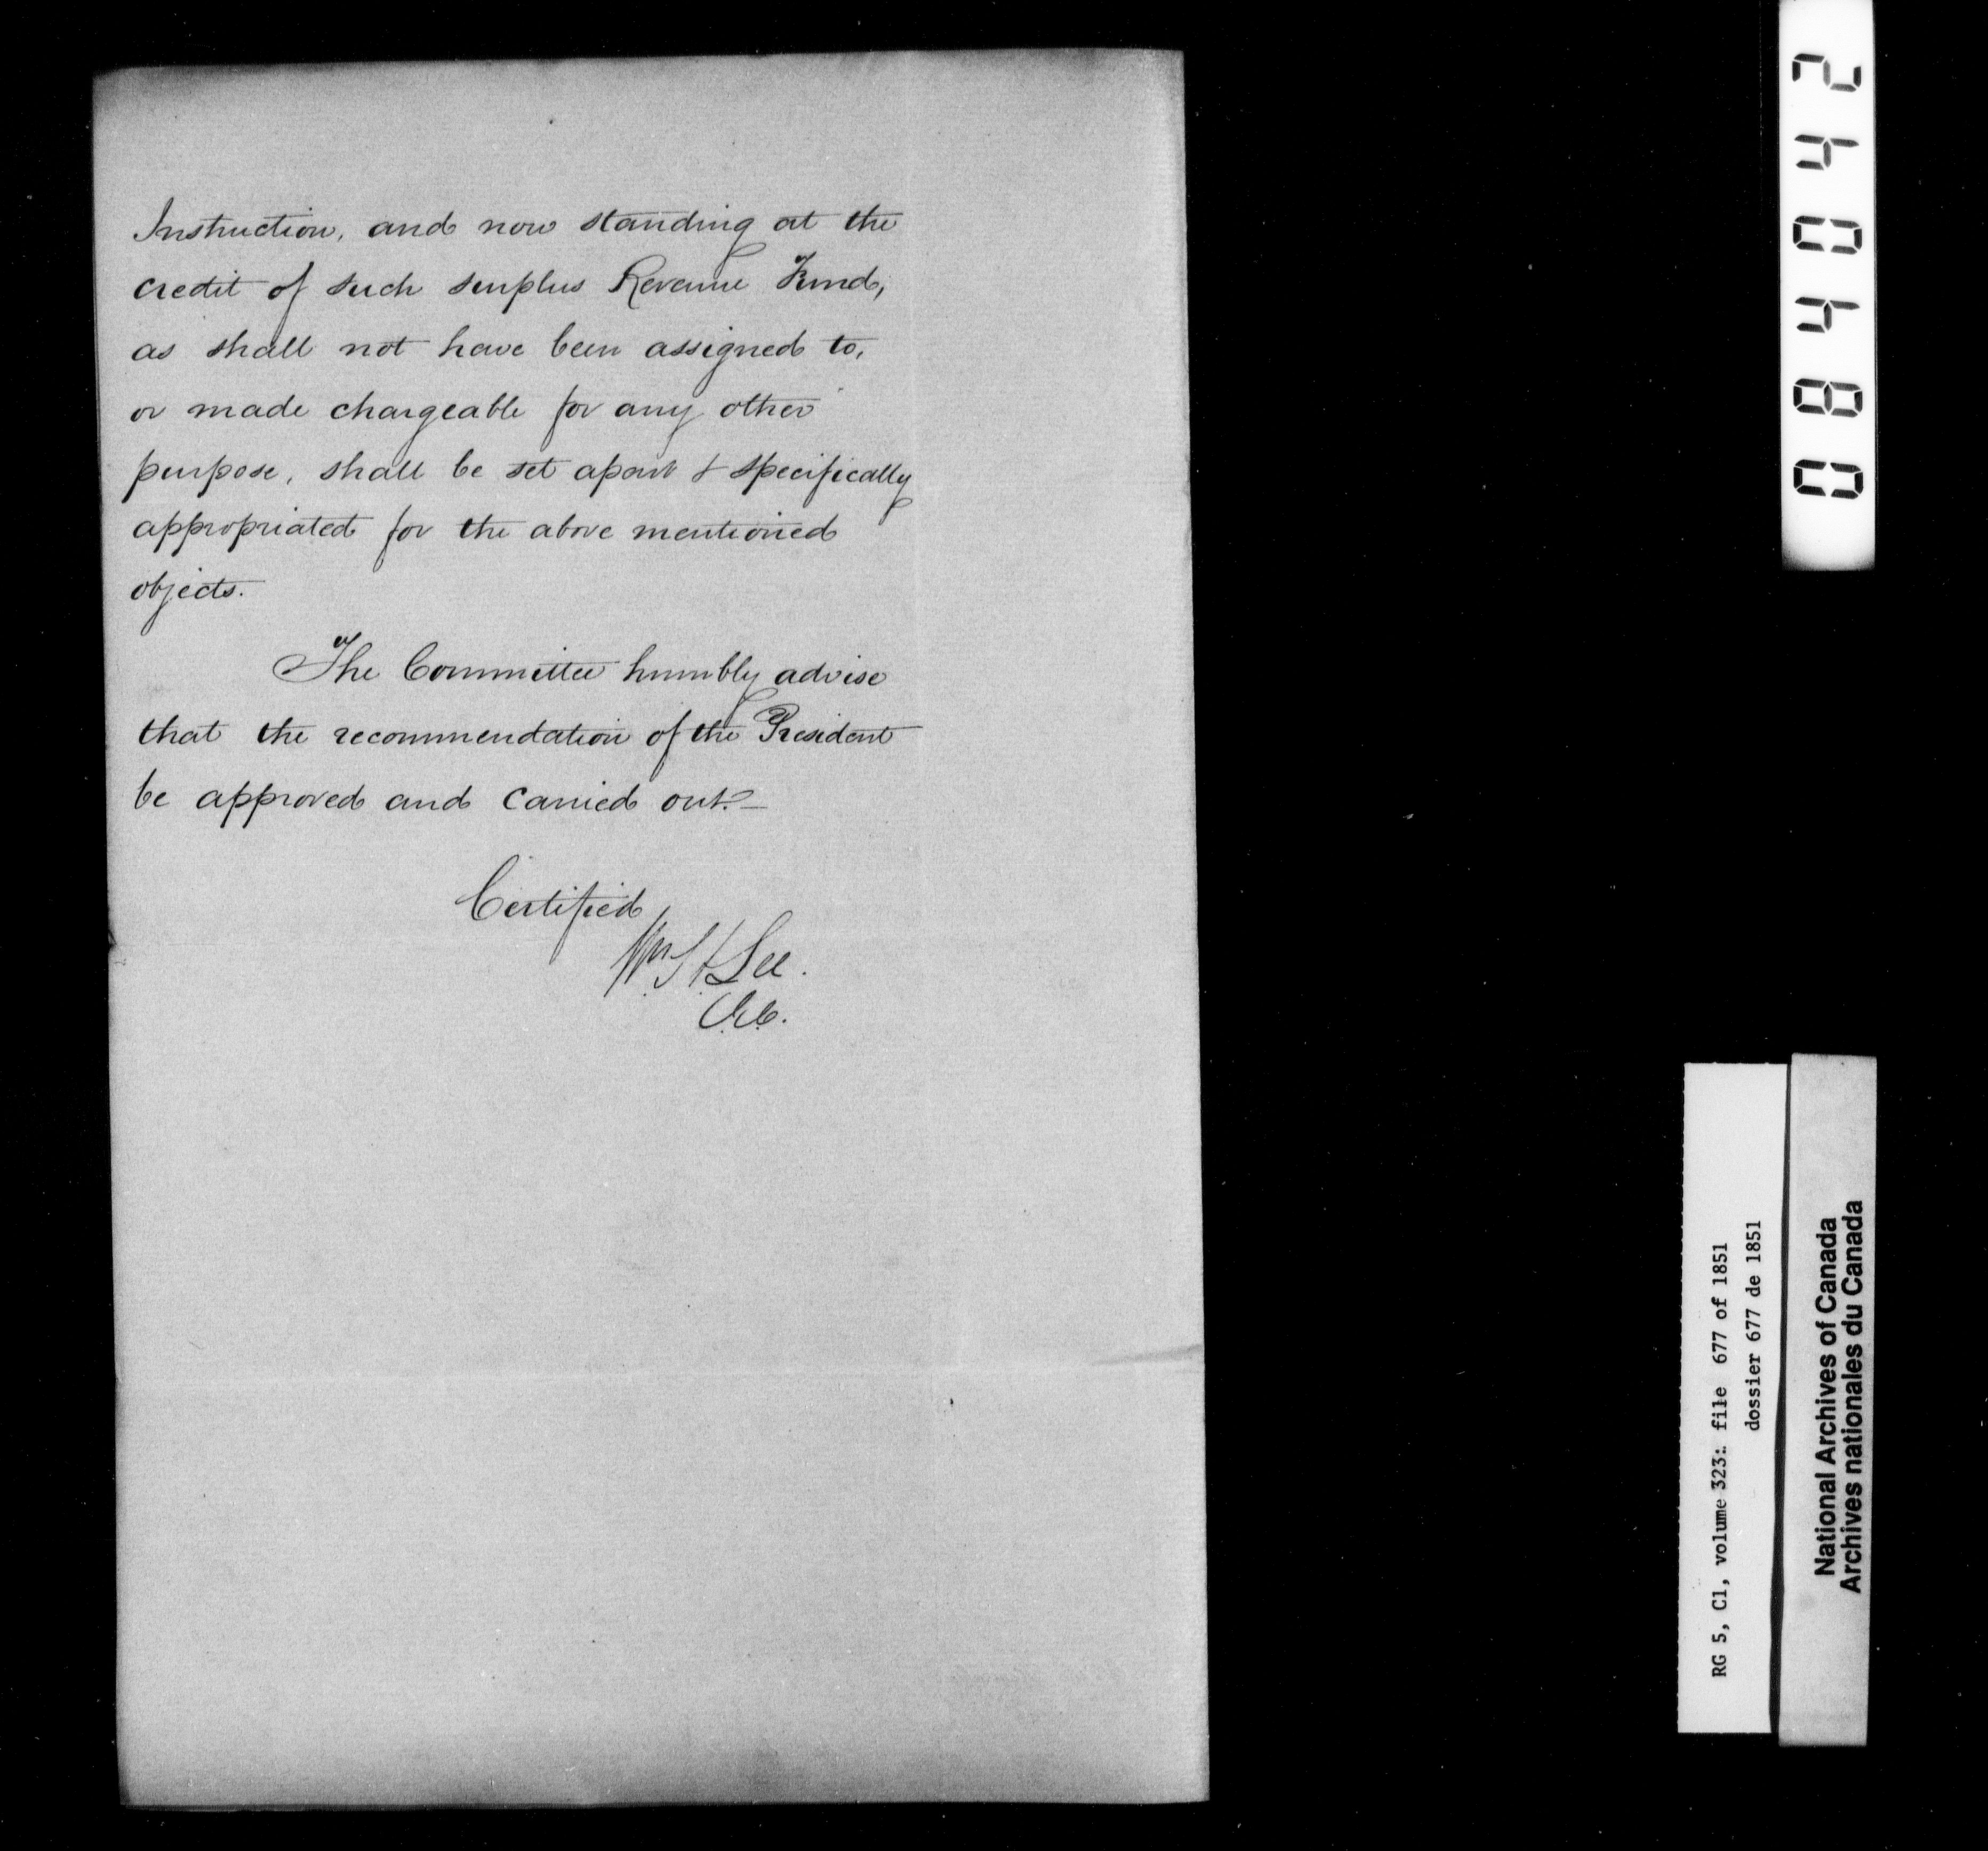 Instruction, and now standing at the
credit of such surplus Revenue Fund,
as shall not have been assigned to,
or made chargeable for any other
purpose, shall be set apart & specifically
appropriated for the above mentioned
objects.
The Committee humbly advise
that the recommendation of the President
be approved and carried out.—
Certified
Wm H Lee.
084042
RG 5, C1, volume 323: file 677 of 1851
dossier 677 de 1851
National Archives of Canada
Archives nationales du Canada